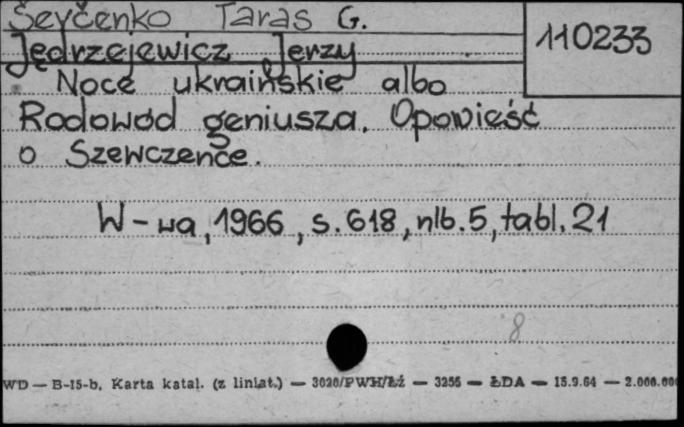 Ševčenko Taras G.
110233
Jędrzejewicz Jerzy
Noce ukraińskie albo
Rodowód geniusza. Opowieść
o Szewczence.
W-wa, 1966, s. 618, nlb. 5, tabl. 21
8
WD — B-15-b. Karta katal. (z liniat.) — 3020/PWH/Łź — 3256 — ŁDA — 15.9.64 — 2.000.000